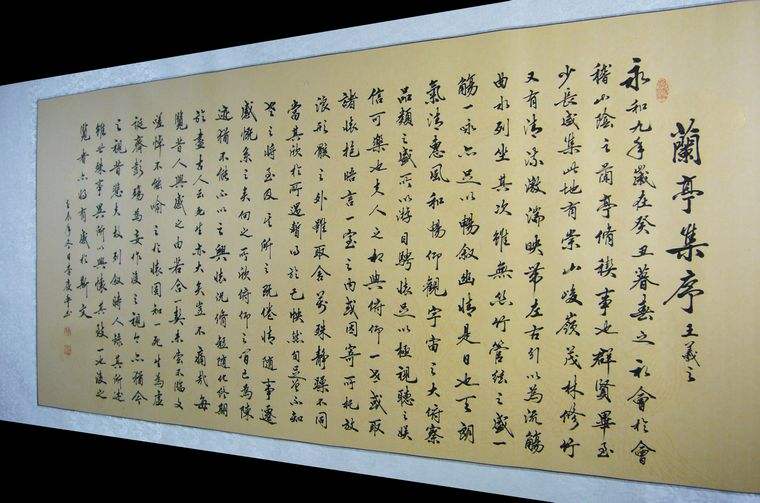 蘭亭集序 王羲之
永和九年歲在癸丑暮春之初會於會
稽山陰之蘭亭脩稧事也群賢畢至
少長咸集此地有崇山峻嶺茂林修竹
又有清流激湍映帶左右引以為流觴
曲水列坐其次雖無絲竹管弦之盛一
觴一詠亦足以暢敘幽情是日也天朗
氣清惠風和暢仰觀宇宙之大俯察
品類之盛所以游目騁懷足以極視聽之娛
信可樂也夫人之相與俯仰一世或取
諸懷抱晤言一室之內或因寄所托放
浪形骸之外雖取舍萬殊靜躁不同
當其欣於所遇暫得於己怏然自足曾不知
老之將至及其所之既倦情隨事遷
感慨系之矣向之所欣俯仰之間已為陳
迹猶不能不以之興懷況脩短隨化終期
於盡古人云死生亦大矣豈不痛哉每
覽昔人興感之由若合一契未嘗不臨文
嗟悼不能喻之於懷固知一死生為虛
誕齊彭殤為妄作後之視今亦猶今
之視昔悲夫故列敘時人錄其所述
雖世殊事異所以興懷其致一也後之
覽者亦將有感於斯文
年冬日李慶平書